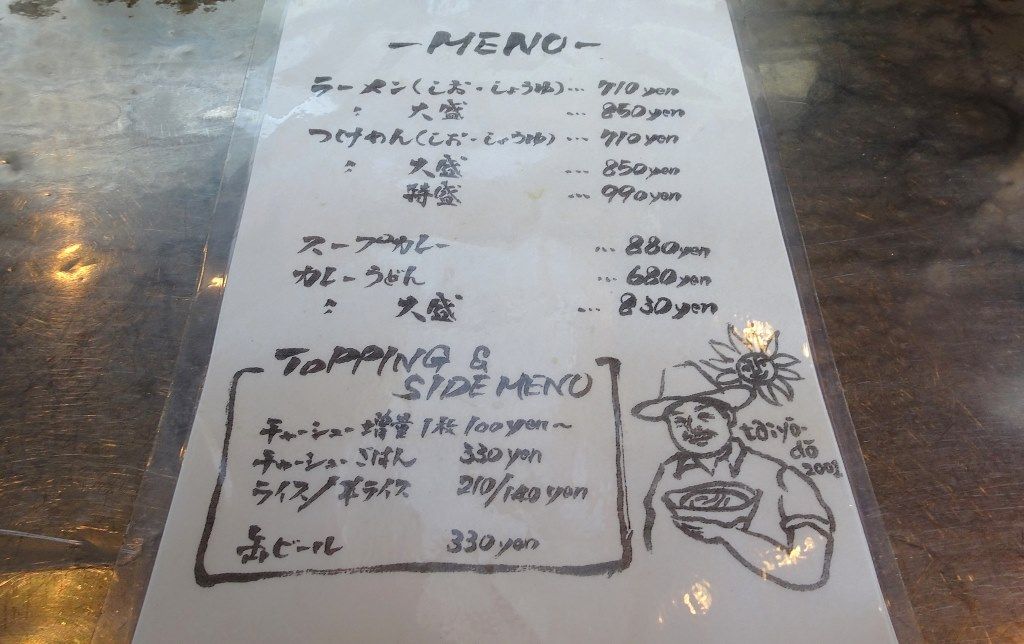 -MENO-
ラーメン(しお・しょうゆ)… 710yen
〃 大盛 … 850yen
つけめん(しお・しょうゆ)… 710yen
〃 大盛 … 850yen
特盛 … 990yen
スープカレー … 880yen
カレーうどん … 680yen
〃 大盛 … 830yen
ToPPING &
SIDE MENO
チャーシュー増量1枚100yen〜
チャーシューごはん 330yen
ライス/半ライス 210/140yen
缶ビール 330yen
taiyo-
do
2001